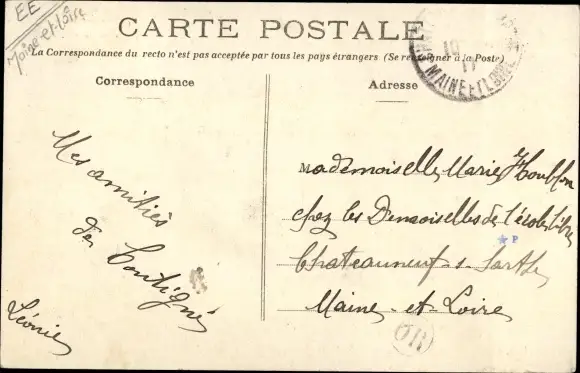 EE
Maine-et-Loire
CARTE POSTALE
La Correspondance du recto n'est pas acceptée par tous les pays étrangers (Se renseigner à la Poste)
Correspondance
Adresse
MAINE ET LOIRE
Mes amitiés
de Contigné
Léonie
Mademoiselle Marie
chez les Demoiselles de l'école libre
P
Chateauneuf-s-Sarthe
Maine-et-Loire
OR